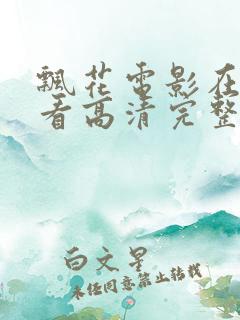 飘花电影在
看高清完整
白文星
未经同意禁止转载